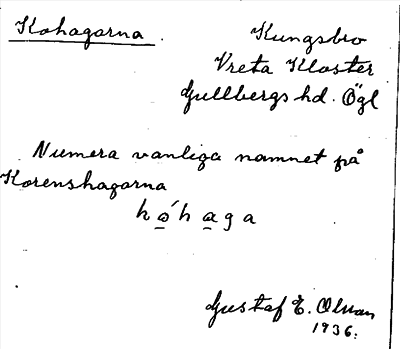 Kohagarna.
Kungsbro
Vreta Kloster
Gullbergs hd. Ögl
Numera vanliga namnet på
Korenshagarna
kóhaga
Gustaf E. Olsson
1936.